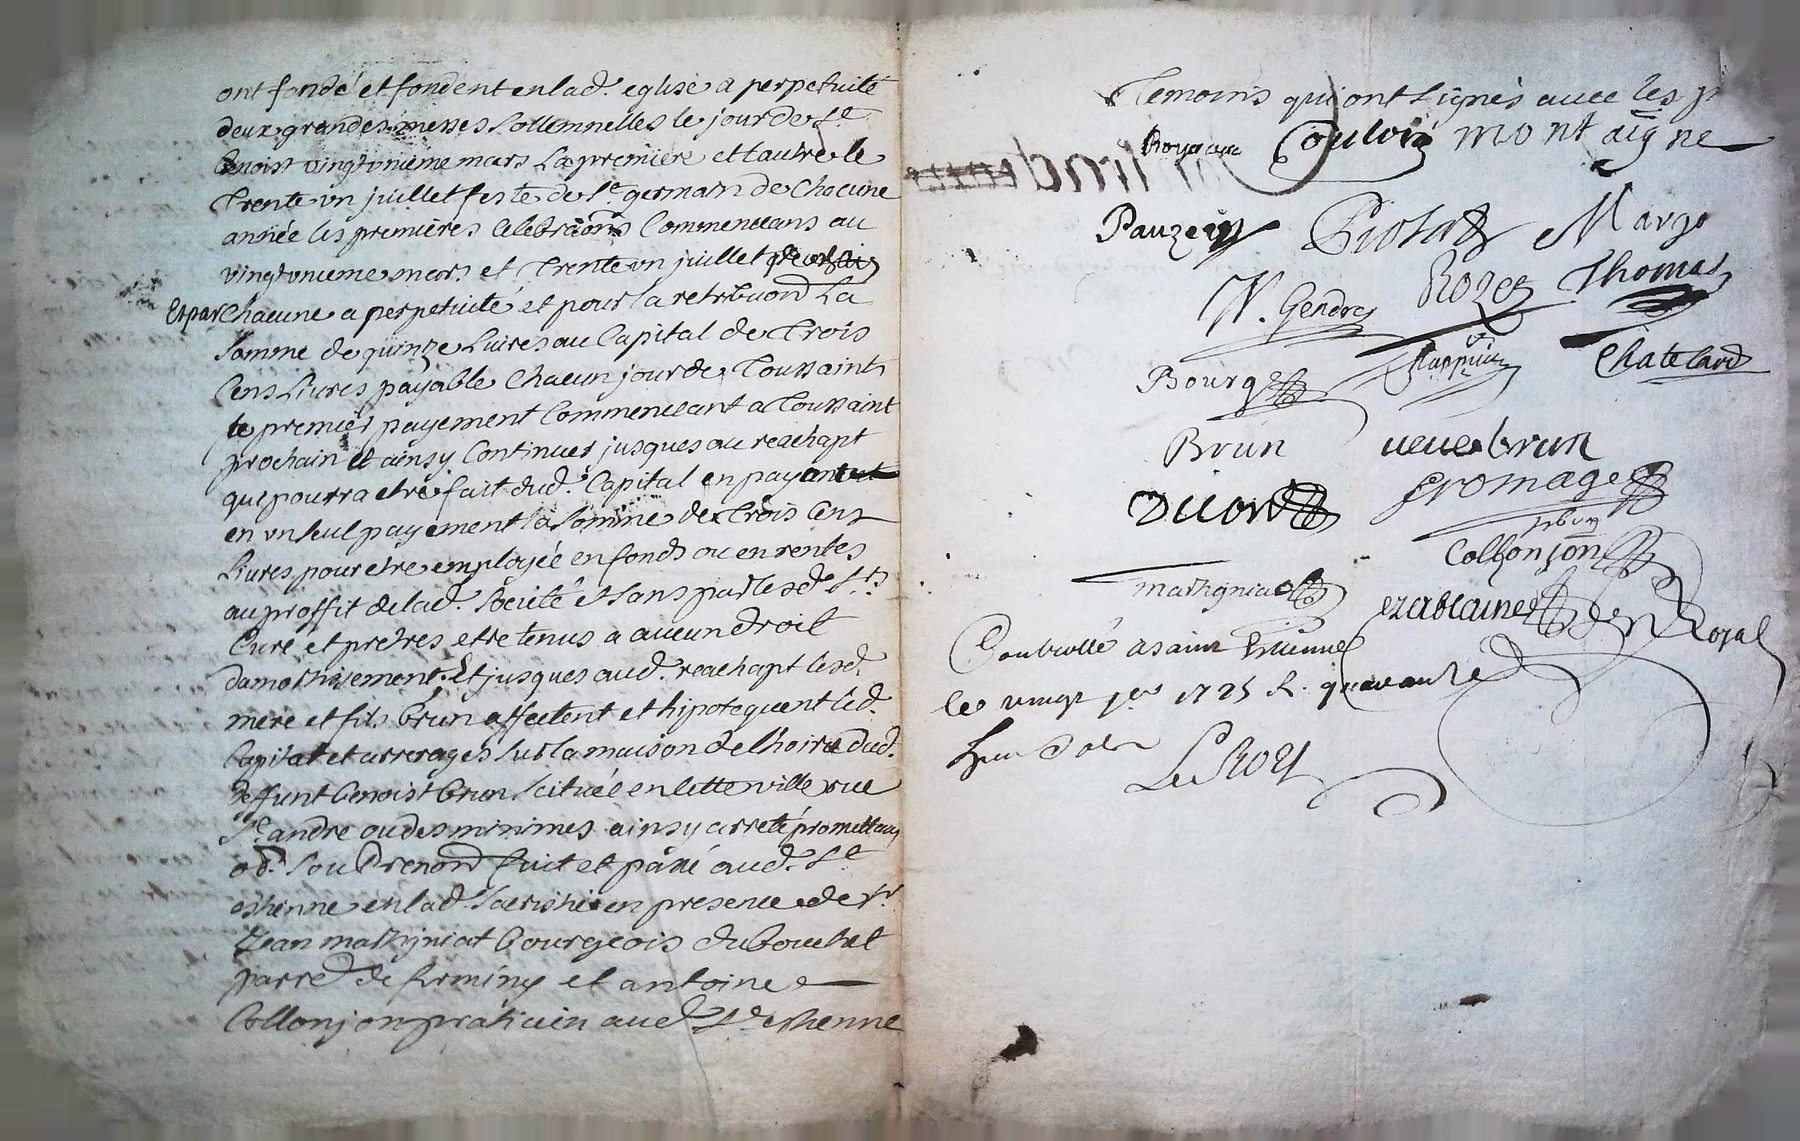 ont fondé et fondent en lad. eglise a perpetuité
deux grandes messes sollemnelles le jour de St
benoist vingtunieme mars la premiere et l'autre le
trente un juillet feste de St germain de chacune
année les premieres celebraons commenceans au
vingtunieme mars et trente un juillet
Et par chacune a perpetuité et pour la retribuon la
somme de quinze livres au capital de trois
cens livres payable chacun jour de Toussaint
le premier payement commenceant a Toussaint
prochain et ainsy continuer jusques au reachapt
qui pourra etre fait dud. capital en payant
en un seul payement la somme de trois cens
livres pour etre employée en fonds ou en rentes
au proffit de lad. société et sans par lesd. Srs
curé et pretres etre tenus a aucun droit
damortissement. Et jusques aud. reachapt lesd.
mere et fils brun affectent et hipotequent led.
capital et arrerages sur la maison de l'hoirie dud.
deffunt benoist brun scituée en cette ville rue
St andré ou des minimes ainsy arreté promettans
obt. sou Prenond fait et passé aud. St
estienne en lad. sacristie en presence de Sr
Jean mathigniat bourgeois du bouchet
parre de firminy et antoine
Collonjon praticien aud. St estienne
Temoins qui ont signés avec les
Couloig montaigne
Pauze Piotat Margo
N. Gendre Rozes Thomas
Bourge Chatelard
Brun veuve brun
Ducort fromage
Collonjon
mathigniat de Royal
Controllé a saint Etienne
le vingt jer 1725 R. quarante
LeRoy